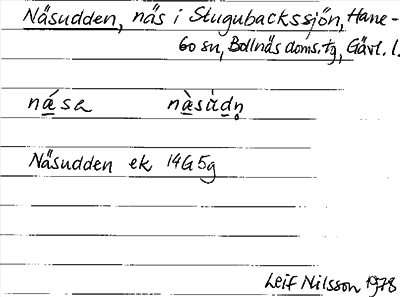 Näsudden, näs i Stugubackssjön, Hane-
bo sn, Bollnäs doms.tg, Gävl. l.
nǽsa næ̀sùdn̥
Näsudden ek 14G5g
Leif Nilsson 1978